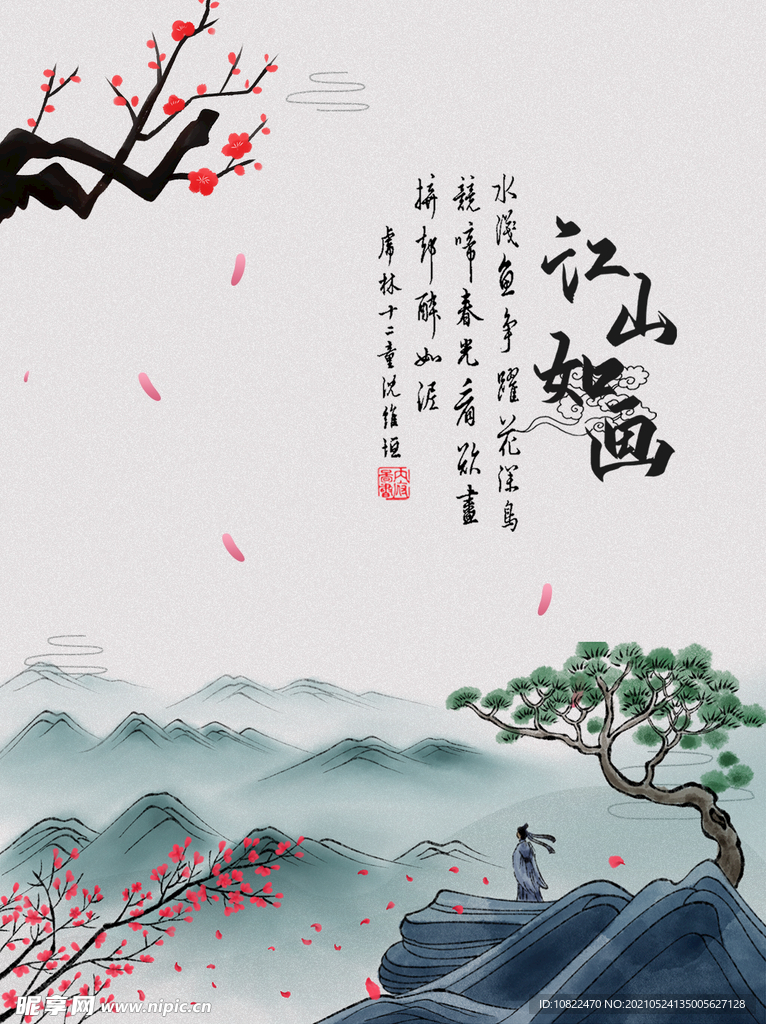 江山如画
水浅鱼争躍花深鳥
競啼春光看欲盡
拚却醉如泥
虎林十二童沈維垣
昵享网 www.nipic.cn
ID:10822470 NO:20210524135005627128